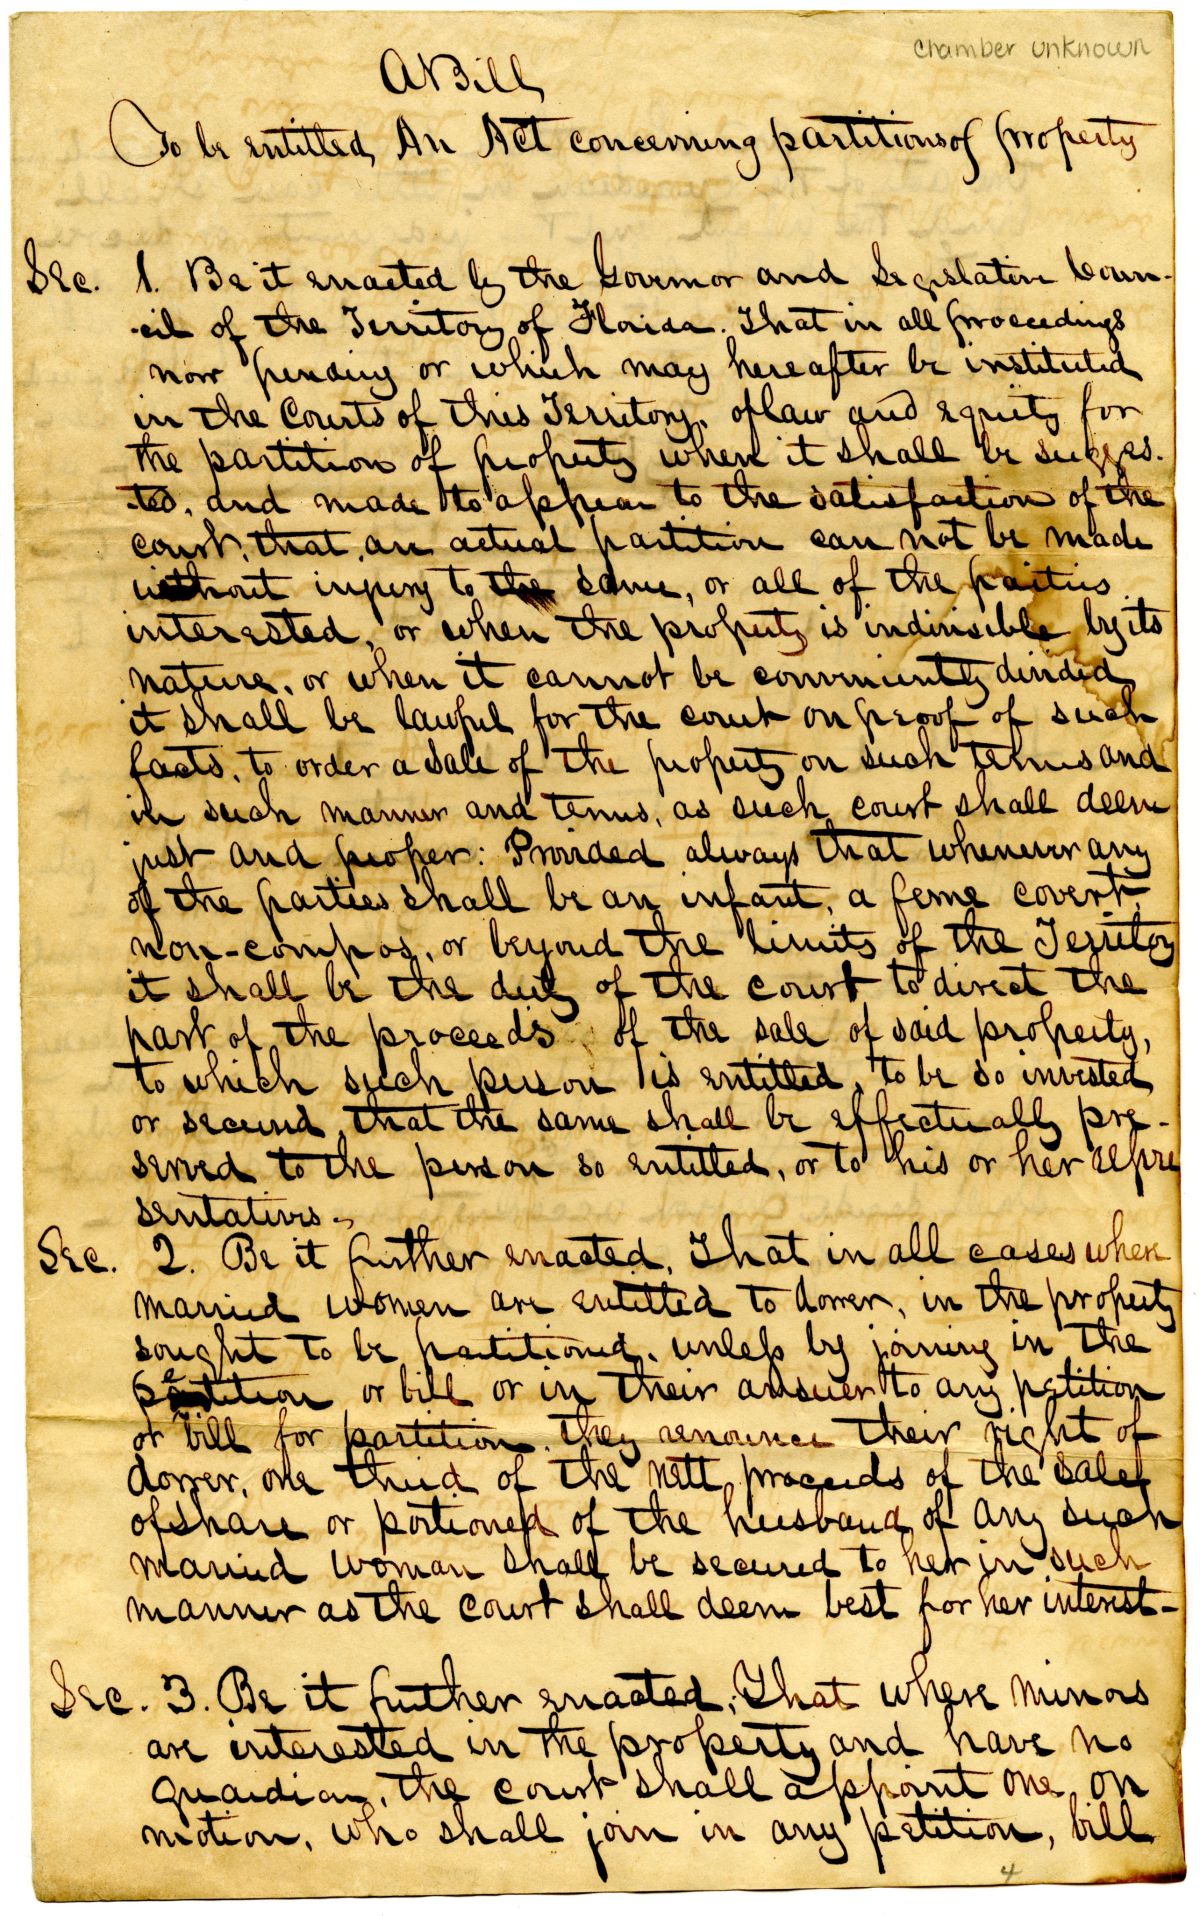 chamber unknown
A Bill,
To be entitled, An Act concerning partitions of property
Sec. 1. Be it enacted by the Governor and Legislative Coun-
-cil of the Territory of Florida. That in all proceedings
now pending or which may hereafter be instituted
in the Courts of this Territory, of law and equity for
the partition of property when it shall be sugges.
-ted, and made to appear to the satisfaction of the
court, that, an actual partition can not be made
without injury to the same, or all of the parties
interested, or when the property is indivisible by its
nature, or when it cannot be conveniently divided,
it shall be lawful for the court on proof of such
facts, to order a sale of the property on such terms and
in such manner and terms, as such court shall deem
just and proper: Provided always that whenever any
of the parties shall be an infant, a feme covert,
non-compos, or beyond the limits of the Territory
it shall be the duty of the court to direct the
part of the proceeds of the sale of said property,
to which such person is entitled, to be so invested,
or secured, that the same shall be effectually pre-
served to the person so entitled, or to his or her repre
sentatives.
Sec. 2. Be it further enacted, That in all cases where
married women are entitled to dower, in the property
sought to be partitioned, unless by joining in the
petition or bill or in their answer to any petition
or bill for partition, they renounce their right of
dower, one third of the nett proceeds of the sale
of share or portioned of the husband of any such
married woman shall be secured to her in such
manner as the court shall deem best for her interest-
Sec. 3. Be it further enacted, That where minors
are interested in the property and have no
guardian, the court shall appoint one, on
motion, who shall join in any petition, bill
4